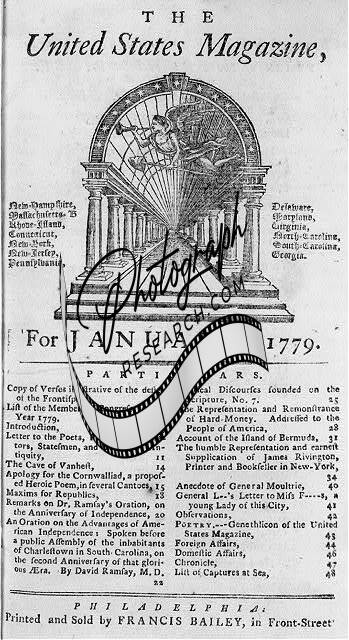 THE
United States Magazine,
New-Hampshire,
Massachusetts-B
Rhode-Island,
Connecticut,
New-York,
New-Jersey,
Pennsylvania,
Delaware,
Maryland,
Virginia,
North-Carolina,
South-Carolina,
Georgia.
Photograph
RESEARCH.COM
For JANUA 1779.
PARTI ARS.
Copy of Verses illustrative of the
of the Frontisp
List of the Membe
Year 1779.
Introduction,
Letter to the Poets,
tors, Statesmen, and
tiquity, 11
The Cave of Vanhest, 14
Apology for the Cornwalliad, a propos-
ed Heroic Poem, in several Cantos, 15
Maxims for Republics, 18
Remarks on Dr. Ramsay's Oration, on
the Anniversary of Independence, 20
An Oration on the Advantages of Ame-
rican Independence: Spoken before
a public Assembly of the inhabitants
of Charlestown in South-Carolina, on
the second Anniversary of that glori-
ous Æra. By David Ramsay, M. D.
22
ical Discourses founded on the
cripture, No. 7. 25
he Representation and Remonstrance
of Hard-Money. Addressed to the
People of America, 28
Account of the Island of Bermuda, 31
The humble Representation and earnest
Supplication of James Rivington,
Printer and Bookseller in New-York,
34
Anecdote of General Moultrie, 40
General L--'s Letter to Miss F----s, a
young Lady of this City, 41
Observations, 42
POETRY.---Genethlicon of the United
States Magazine, 43
Foreign Affairs, 44
Domestic Affairs, 46
Chronicle, 47
List of Captures at Sea, 48
PHILADELPHIA:
Printed and Sold by FRANCIS BAILEY, in Front-Street